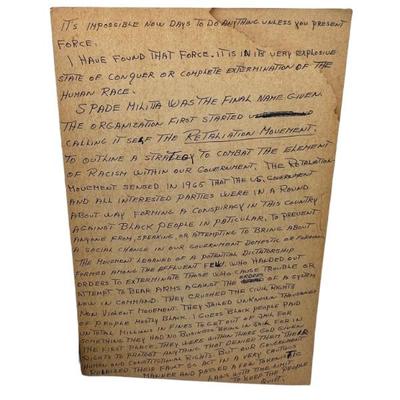 IT'S IMPOSSIBLE NOW DAYS TO DO ANYTHING UNLESS YOU PRESENT
FORCE.
I HAVE FOUND THAT FORCE. IT IS IN ITS VERY EXPLOSIVE
STATE OF CONQUER OR COMPLETE EXTERMINATION OF THE
HUMAN RACE.
SPADE MILITIA WAS THE FINAL NAME GIVEN
THE ORGANIZATION FIRST STARTED
CALLING IT SELF THE RETALIATION MOVEMENT.
TO OUTLINE A STRATEGY TO COMBAT THE ELEMENT
OF RACISM WITHIN OUR GOVERNMENT. THE RETALIATION
MOVEMENT SENSED IN 1965 THAT THE U.S. GOVERNMENT
AND ALL INTERESTED PARTIES WERE IN A ROUND
ABOUT WAY FORMING A CONSPIRACY IN THIS COUNTRY
AGAINST BLACK PEOPLE IN PATICULAR, TO PREVENT
ANYONE FROM, SPEAKING, OR ATTEMPTING TO BRING ABOUT
A SOCIAL CHANGE IN OUR GOVERNMENT DOMESTIC OR FOREIGN.
THE MOVEMENT LEARNED OF A POTENTIAL DICTATORSHIP
FORMED AMONG THE AFFLUENT FEW, WHO HANDED OUT
ORDERS TO EXTERMINATE THOSE WHO CAUSE TROUBLE OR
ATTEMPT TO BEAR ARMS AGAINST THE OF A SYSTEM
NOW IN COMMAND. THEY CRUSHED THE CIVIL RIGHTS
NON VIOLENT MOVEMENT. THEY JAILED UNKNOWN THOUSANDS
OF PEOPLE MOSTLY BLACK. I GUESS BLACK PEOPLE PAID
IN TOTAL MILLIONS IN FINES TO GET OUT OF JAIL FOR
SOMETHING THEY HAD NO BUSINESS BEING IN JAIL FOR IN
THE FIRST PLACE. THEY WERE WITHIN THERE GOD GIVEN
RIGHTS TO PROTEST ANYTHING THAT DENIED THEM THEIR
HUMAN AND CONSTITUTIONAL RIGHTS. BUT OUR GOVERNMENT
REALIZED THEIR FAULT SO ACT IN A VERY CAUTIOUS
MANNER AND PASSED A FEW TOKEN
LAWS WITH TIME LIMIT
TO KEEP THE PEOPLE
QUIET.